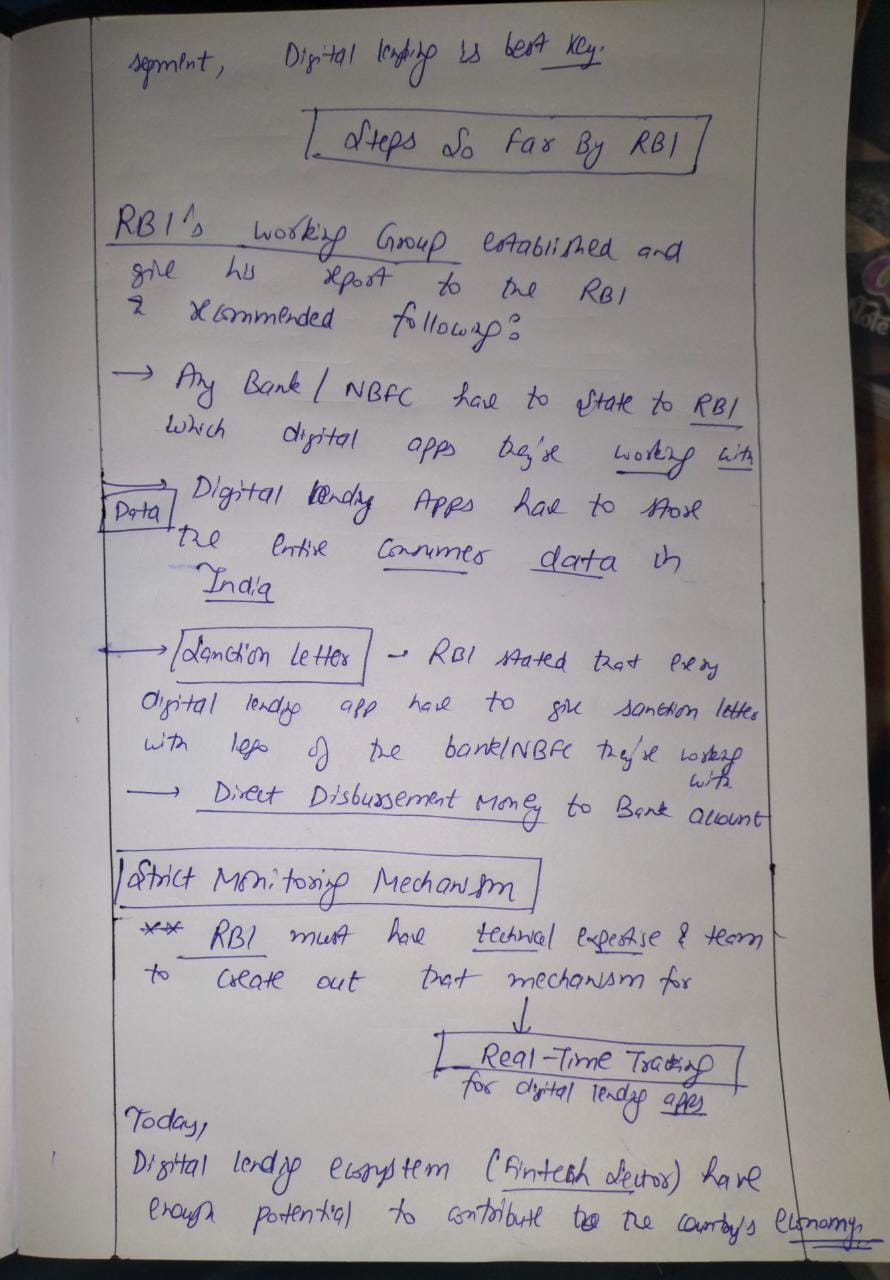 segment, Digital lending is best key.
Steps So Far By RBI
RBI's working Group established and
give his report to the RBI
& recommended following:
→ Any Bank / NBFC have to state to RBI
which digital apps they're working with
→ Digital lending Apps have to store
Data
the entire consumer data in
India
→ Sanction Letter - RBI stated that every
digital lending app have to give sanction letter
with logo of the bank/NBFC they're working
with
→ Direct Disbursement Money to Bank account
Strict Monitoring Mechanism
** RBI must have technical expertise & team
to create out that mechanism for
↓
Real-Time Tracking
for digital lending apps
Today,
Digital lending ecosystem (Fintech Sector) have
enough potential to contribute to the country's economy.